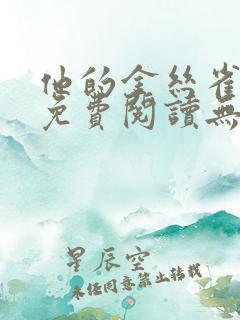 他的金丝雀
免費閱讀無
星辰空
未经同意禁止转载